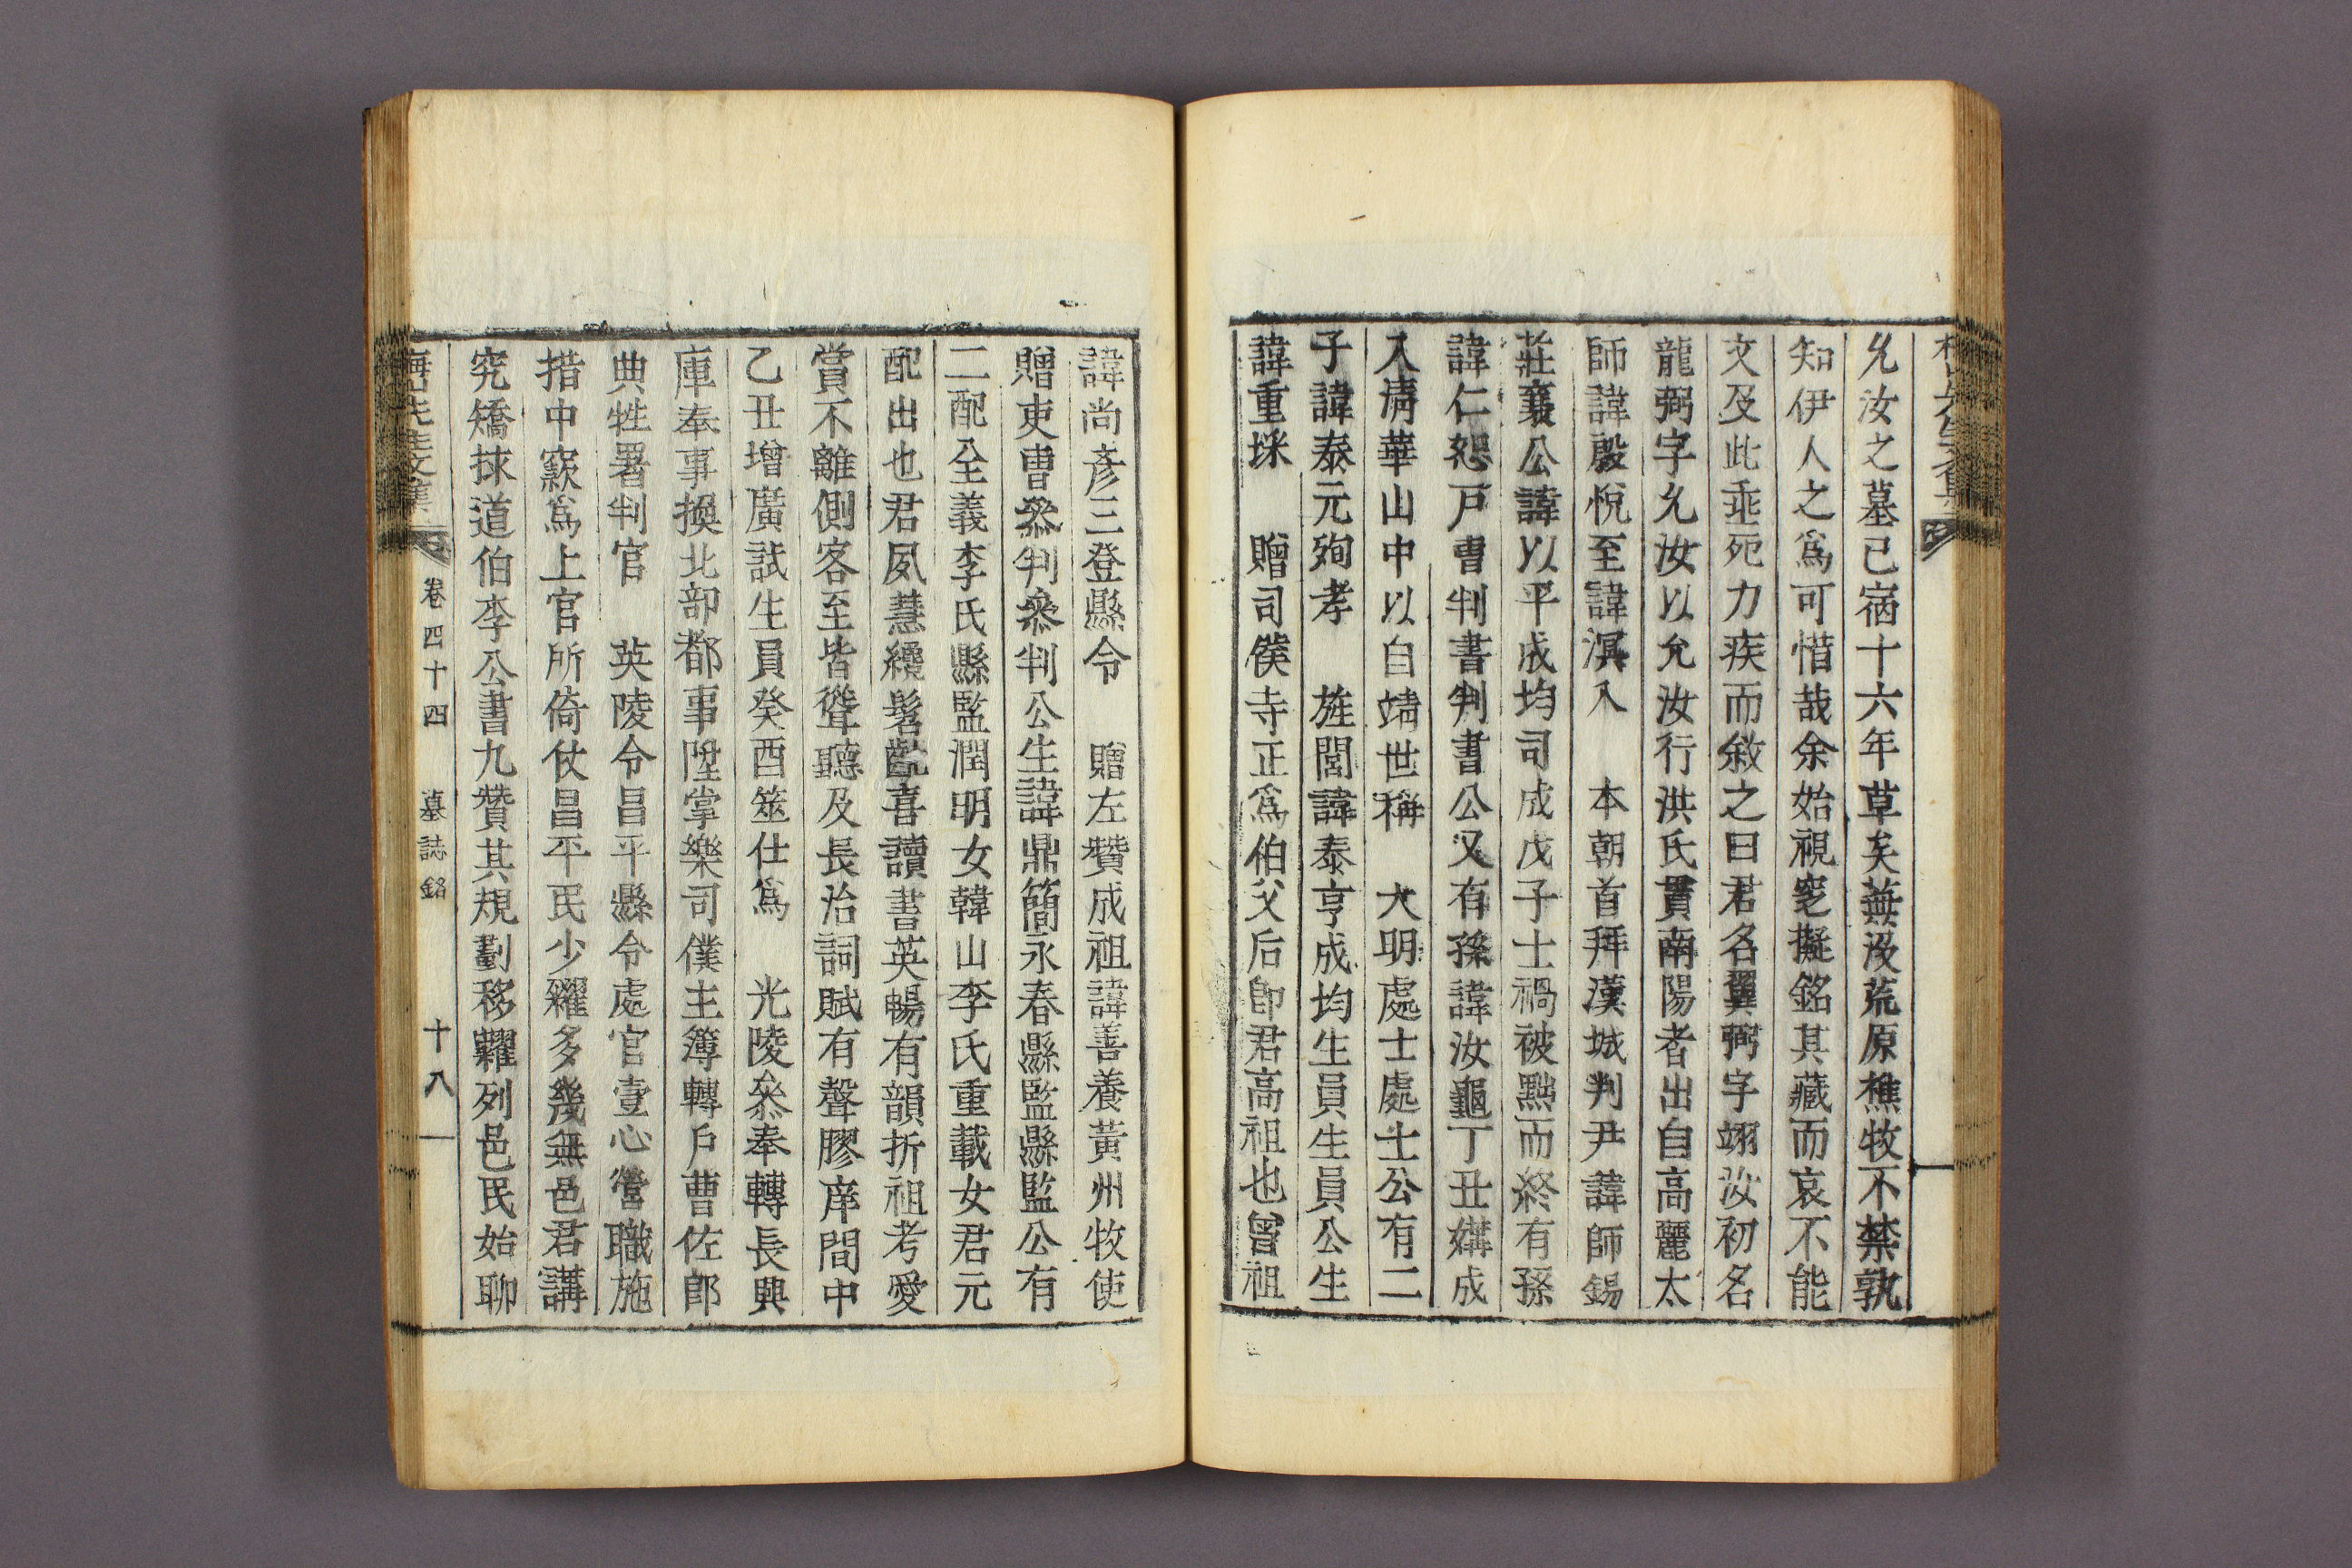 允汝之墓已宿十六年草矣蕪沒荒原樵牧不禁孰
知伊人之爲可惜哉余始視窆擬銘其藏而哀不能
文及此垂死力疾而敘之曰君名翼弼字翊汝初名
龍弼字允汝以允汝行洪氏貫南陽者出自高麗太
師諱殷悅至諱淇入　本朝首拜漢城判尹諱師錫
莊襄公諱以平成均司成戊子士禍被黜而終有孫
諱仁恕戶曹判書判書公又有孫諱汝龜丁丑媾成
入淸華山中以自靖世稱　大明處士處士公有二
子諱泰元殉孝　旌閭諱泰亨成均生員生員公生
諱重埰　贈司僕寺正爲伯父后卽君高祖也曾祖
諱尙彥三登縣令　贈左贊成祖諱善養黃州牧使
贈吏曹參判參判公生諱鼎簡永春縣監縣監公有
二配全義李氏縣監潤明女韓山李氏重載女君元
配出也君夙慧纔髫齔喜讀書英暢有韻折祖考愛
賞不離側客至皆聳聽及長治詞賦有聲膠庠間中
乙丑增廣試生員癸酉筮仕爲　光陵參奉轉長興
庫奉事換北部都事陞掌樂司僕主簿轉戶曹佐郎
典牲署判官　英陵令昌平縣令處官壹心營職施
措中窾爲上官所倚仗昌平民少糴多幾無邑君講
究矯捄道伯李公書九贊其規劃移糶列邑民始聊
梅山先生文集　卷四十四　墓誌銘　十八